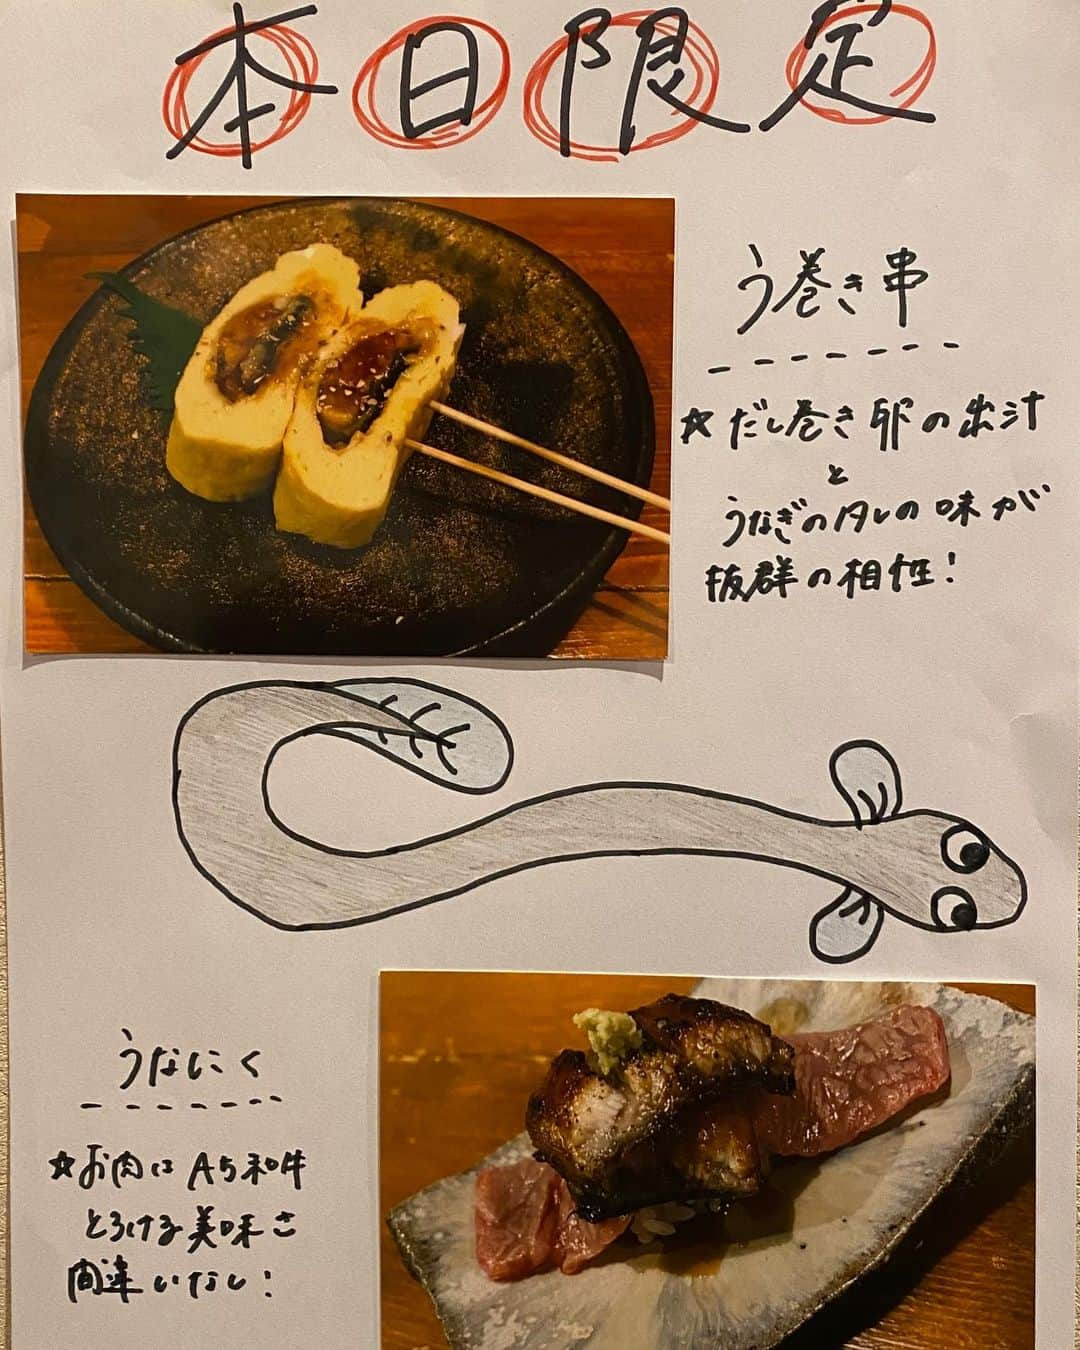 本日限定
う巻き串
☆だし巻き卵の出汁
と
うなぎのタレの味が
抜群の相性!
うなにく
☆お肉はA5和牛
とろける美味さ
間違いなし!